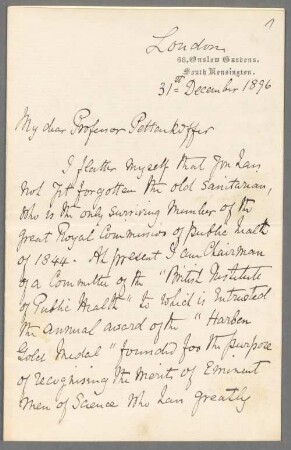 1
London
68, Onslow Gardens,
South Kensington.
31st December 1896
My dear Professor Pettenkoffer
I flatter myself that you have
not yet forgotten the old Sanitarian,
who is the only surviving Member of the
great Royal Commission of Public Health
of 1844. At present I am Chairman
of a Committee of the "British Institute
of Public Health" to which is entrusted
the annual award of the "Harben
Gold Medal" founded for the purpose
of recognising the Merits of Eminent
Men of Science who have greatly